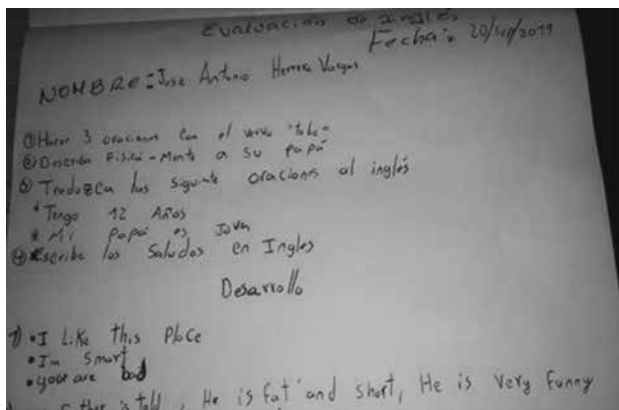 Evaluación de Inglés
Fecha: 20/sep/2011
NOMBRE: Jose Antonio Herrera Vargas
① Hacer 3 oraciones con el verbo "tobe"
② Describa Fisica-Mente a su papá
③ Traduzca las siguiente oraciones al inglés
* Tengo 12 Años
* Mi papá es Joven
④ Escriba los Saludos en Ingles
Desarrollo
1) • I Like this Place
• I'm Smart
• your are bad
ther is told, He is fat and short, He is very funny